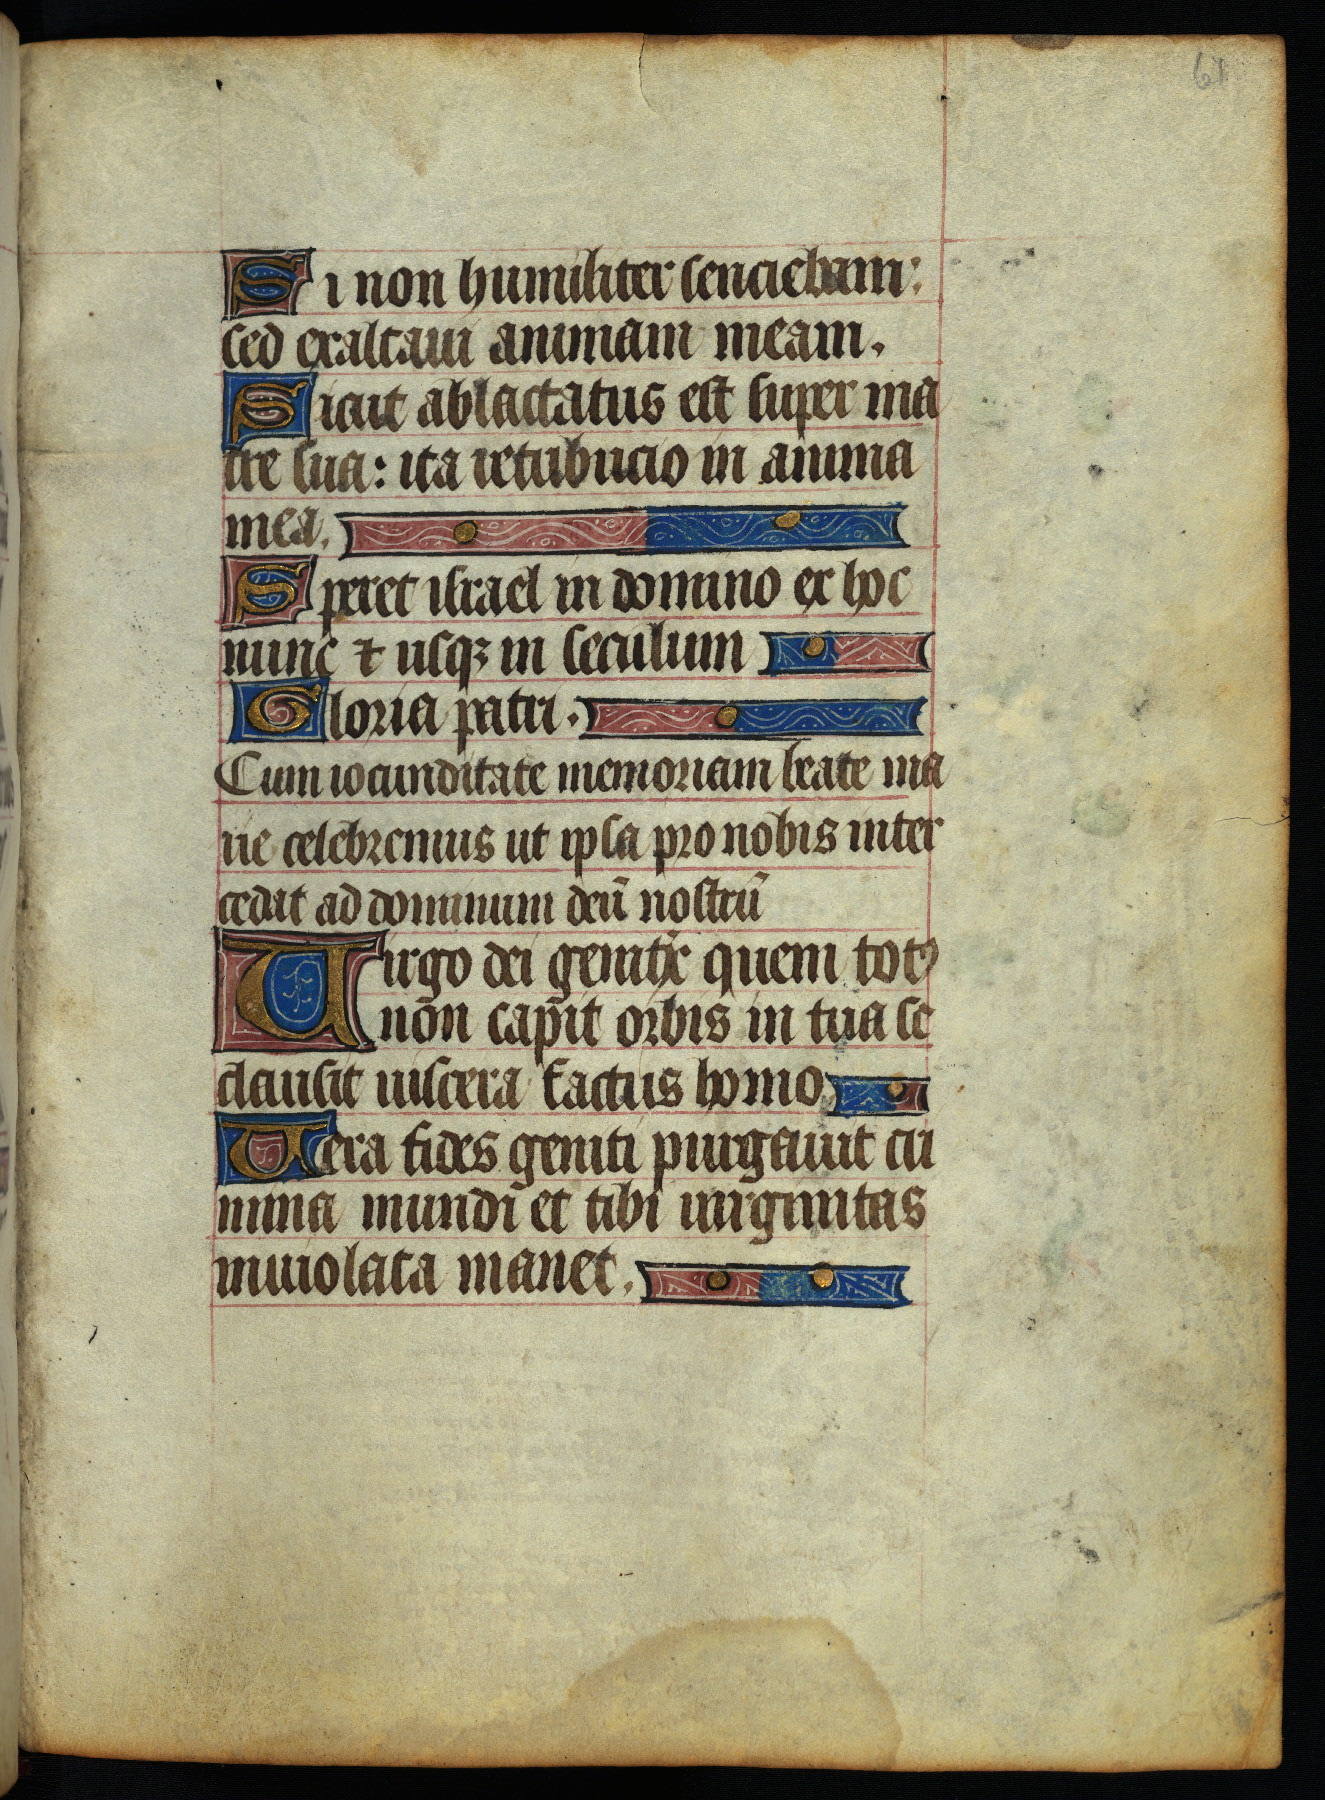 61
Si non humiliter senciebam:
sed exaltaui animam meam.
Sicut ablactatus est super ma
tre sua: ita retribucio in anima
mea.
Speret israel in domino ex hoc
nunc ⁊ usqꝫ in seculum
Gloria patri.
Cum iocunditate memoriam beate ma
rie celebremus ut ipsa pro nobis inter
cedat ad dominum deū nostrū
Uirgo dei genitͥx quem totꝰ
non capit orbis in tua se
clausit uiscera factus homo
Uera fides geniti purgauit cri
mina mundi et tibi uirginitas
inuiolata manet.